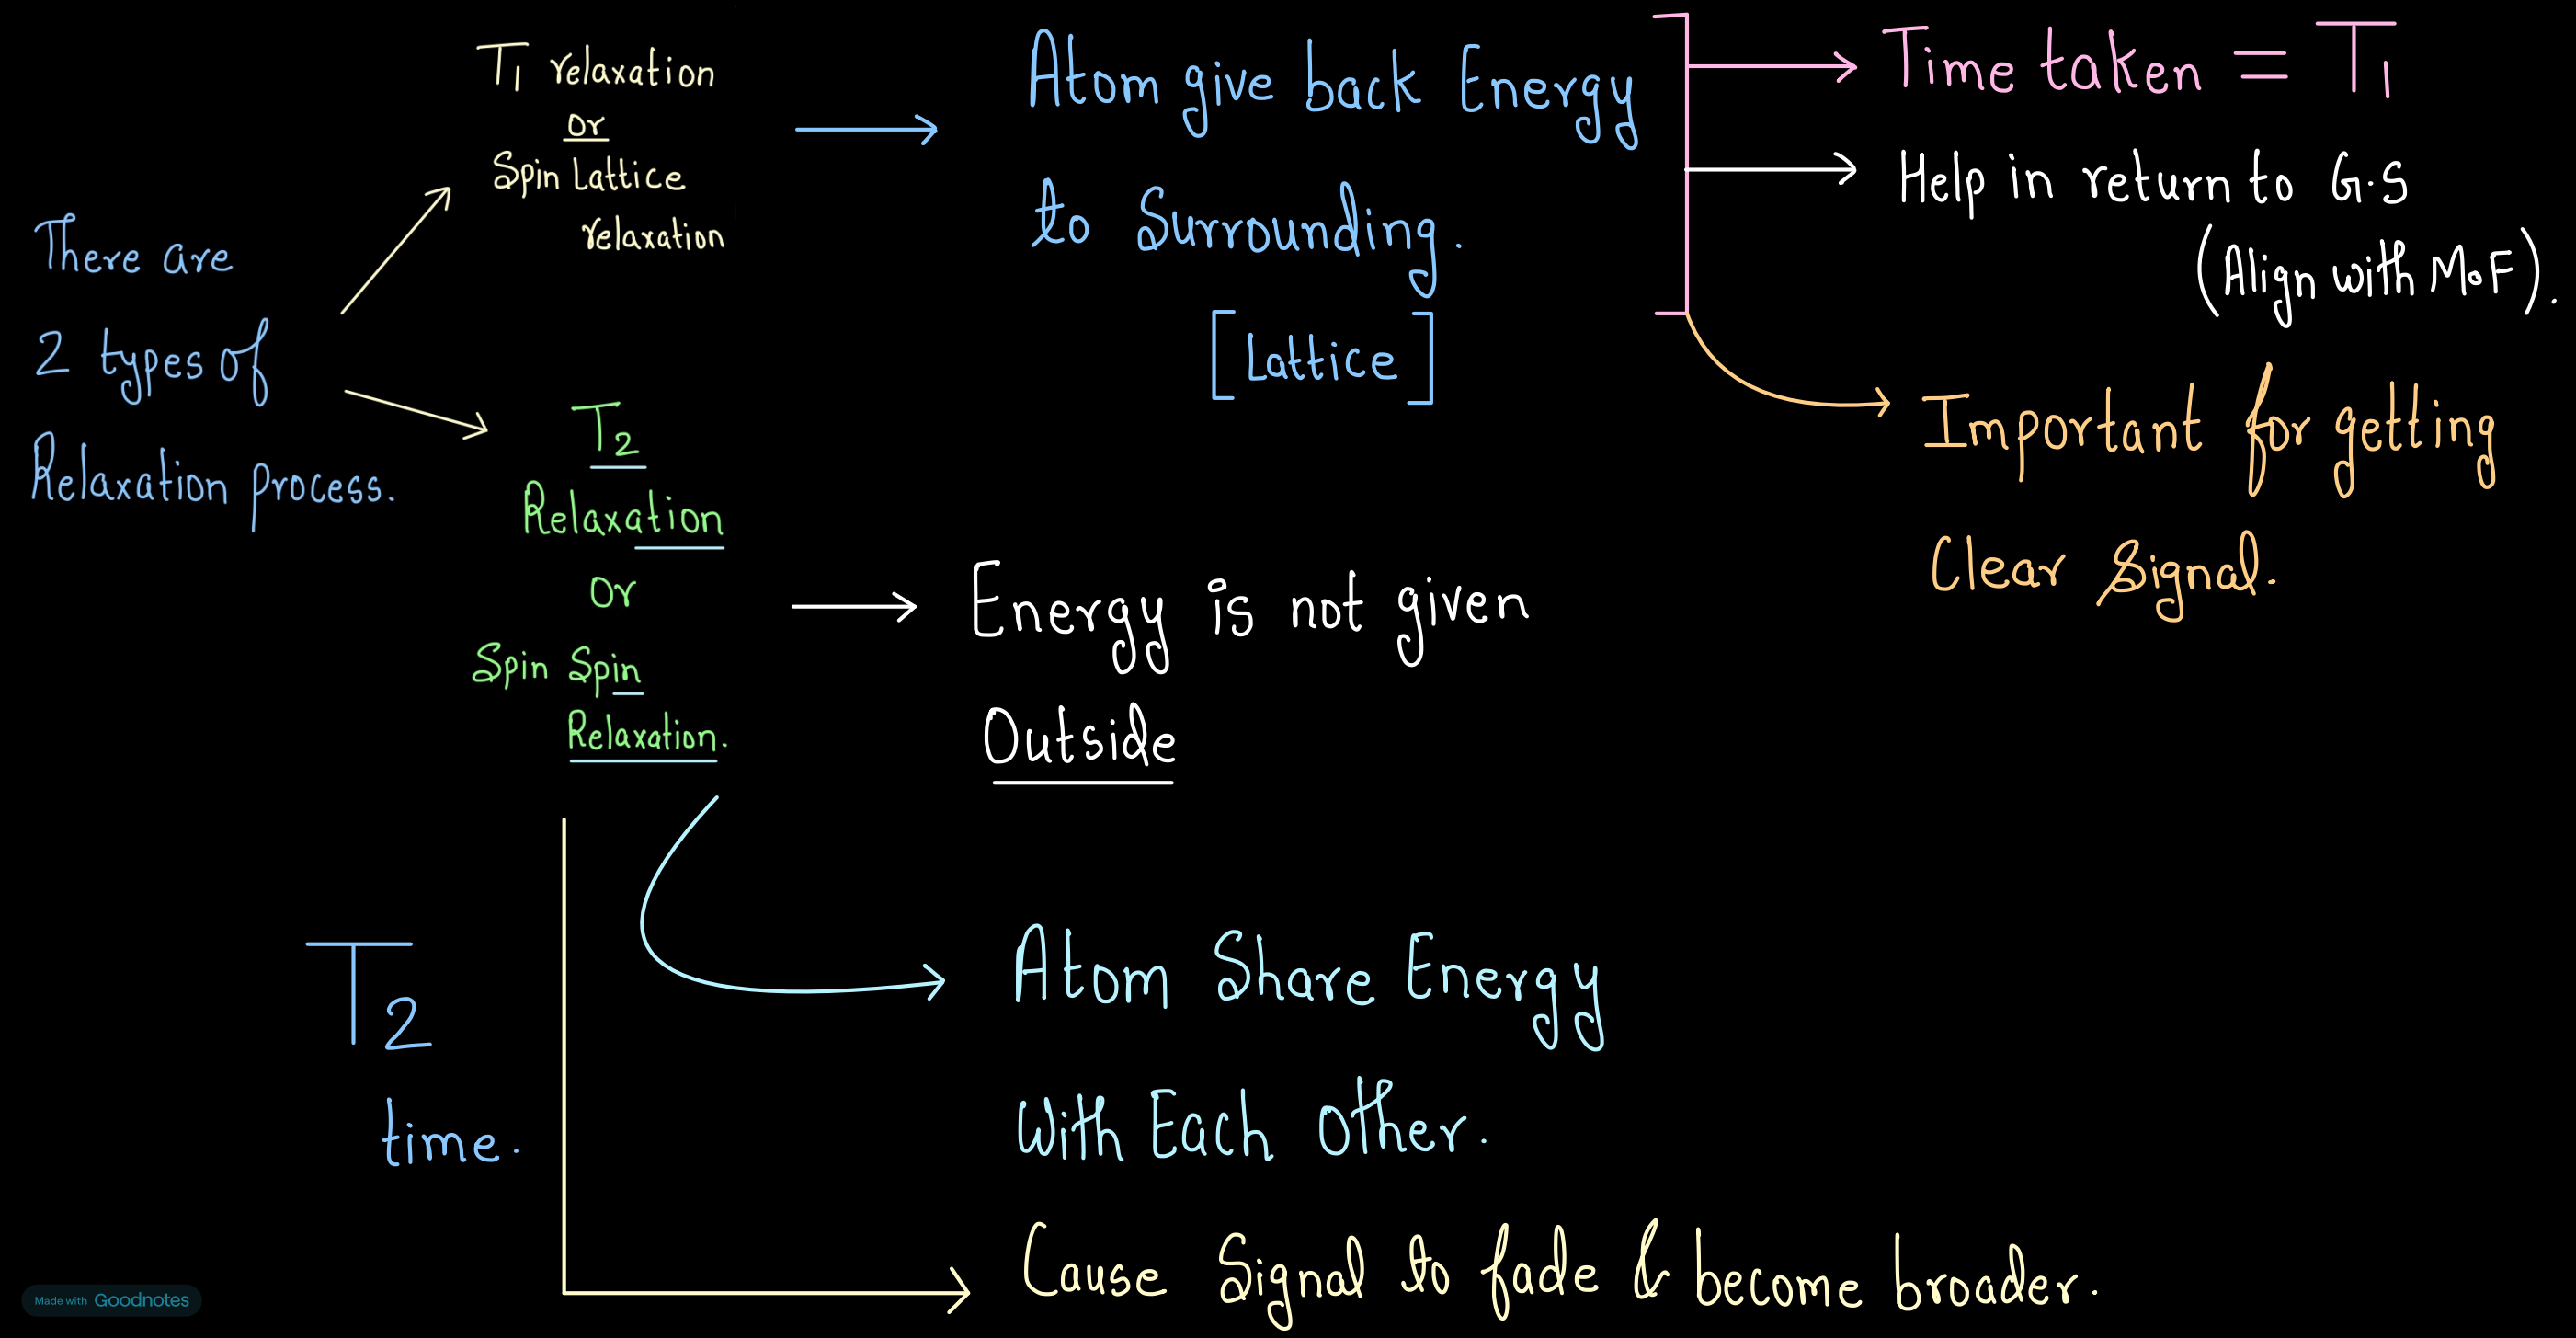 There are
2 types of
Relaxation process.
T1 relaxation
or
Spin Lattice
relaxation
Atom give back Energy
to Surrounding.
[Lattice]
Time taken = T1
Help in return to G.S
(Align with M.F).
Important for getting
Clear Signal.
T2
Relaxation
Or
Spin Spin
Relaxation.
Energy is not given
Outside
Atom Share Energy
With Each other.
T2
time.
Cause Signal to fade & become broader.
Made with Goodnotes